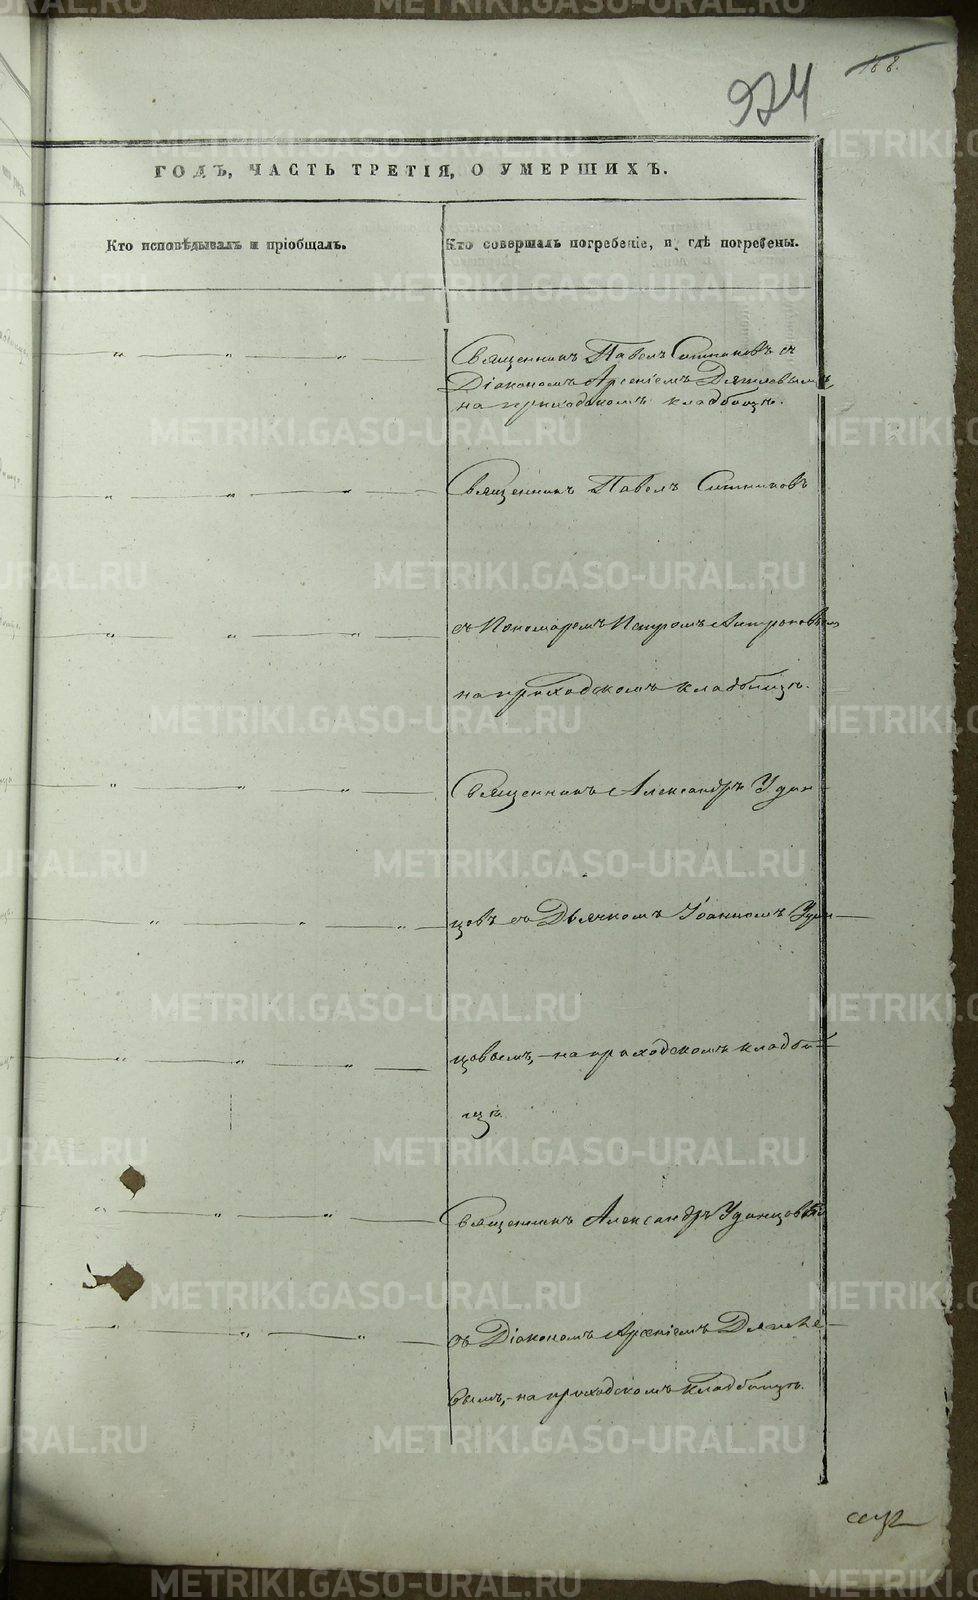 974
168.
ГОДЪ, ЧАСТЬ ТРЕТІЯ, О УМЕРШИХЪ.
Кто исповѣдывалъ и пріобщалъ.
Кто совершалъ погребеніе, и гдѣ погребены.
Священникъ Павелъ Ситниковъ съ
Діакономъ Арсеніемъ
на приходскомъ кладбищѣ.
Священникъ Павелъ Ситниковъ
съ Пономаремъ Петромъ
на приходскомъ кладбищѣ.
Священникъ Александръ Удин-
цовъ съ Дьячкомъ Іоанномъ Удин-
цовымъ, на приходскомъ кладби-
щѣ.
Священникъ Александръ Удинцовъ
съ Діакономъ Арсеніемъ
вымъ, на приходскомъ кладбищѣ.
METRIKI.GASO-URAL.RU